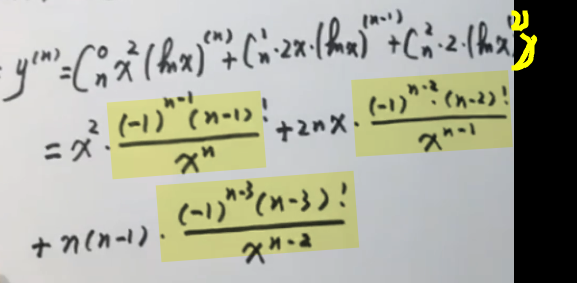 y^{(n)} = C_n^0 x^2 (ln x)^{(n)} + C_n^1 · 2x · (ln x)^{(n-1)} + C_n^2 · 2 · (ln x
= x^2 · \frac{(-1)^{n-1} (n-1)!}{x^n} + 2nx · \frac{(-1)^{n-2} · (n-2)!}{x^{n-1}}
+ n(n-1) · \frac{(-1)^{n-3} (n-3)!}{x^{n-2}}